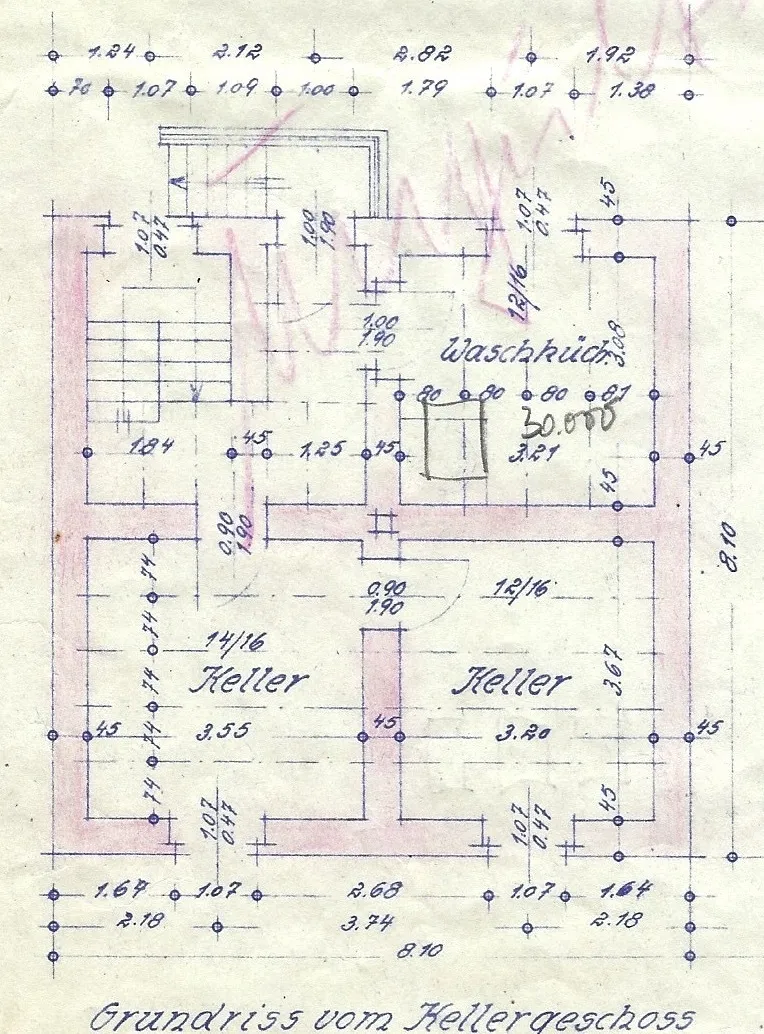 1.24 2.12 2.82 1.92
70 1.07 1.09 1.00 1.79 1.07 1.38
1.07
0.47
1.00
1.90
1.07
0.47
45
12/16
1.00
1.90
Waschküch.
3.08
80 80 80 81
30.000
1.84 45 1.25 45 3.21 45
45
0.90
1.90
8.10
74
74
74
74
74
0.90
1.90
12/16
14/16
Keller Keller
3.67
45 3.55 45 3.20 45
45
1.07
0.47
1.07
0.47
1.64 1.07 2.68 1.07 1.64
2.18 3.74 2.18
8.10
Grundriss vom Kellergeschoss